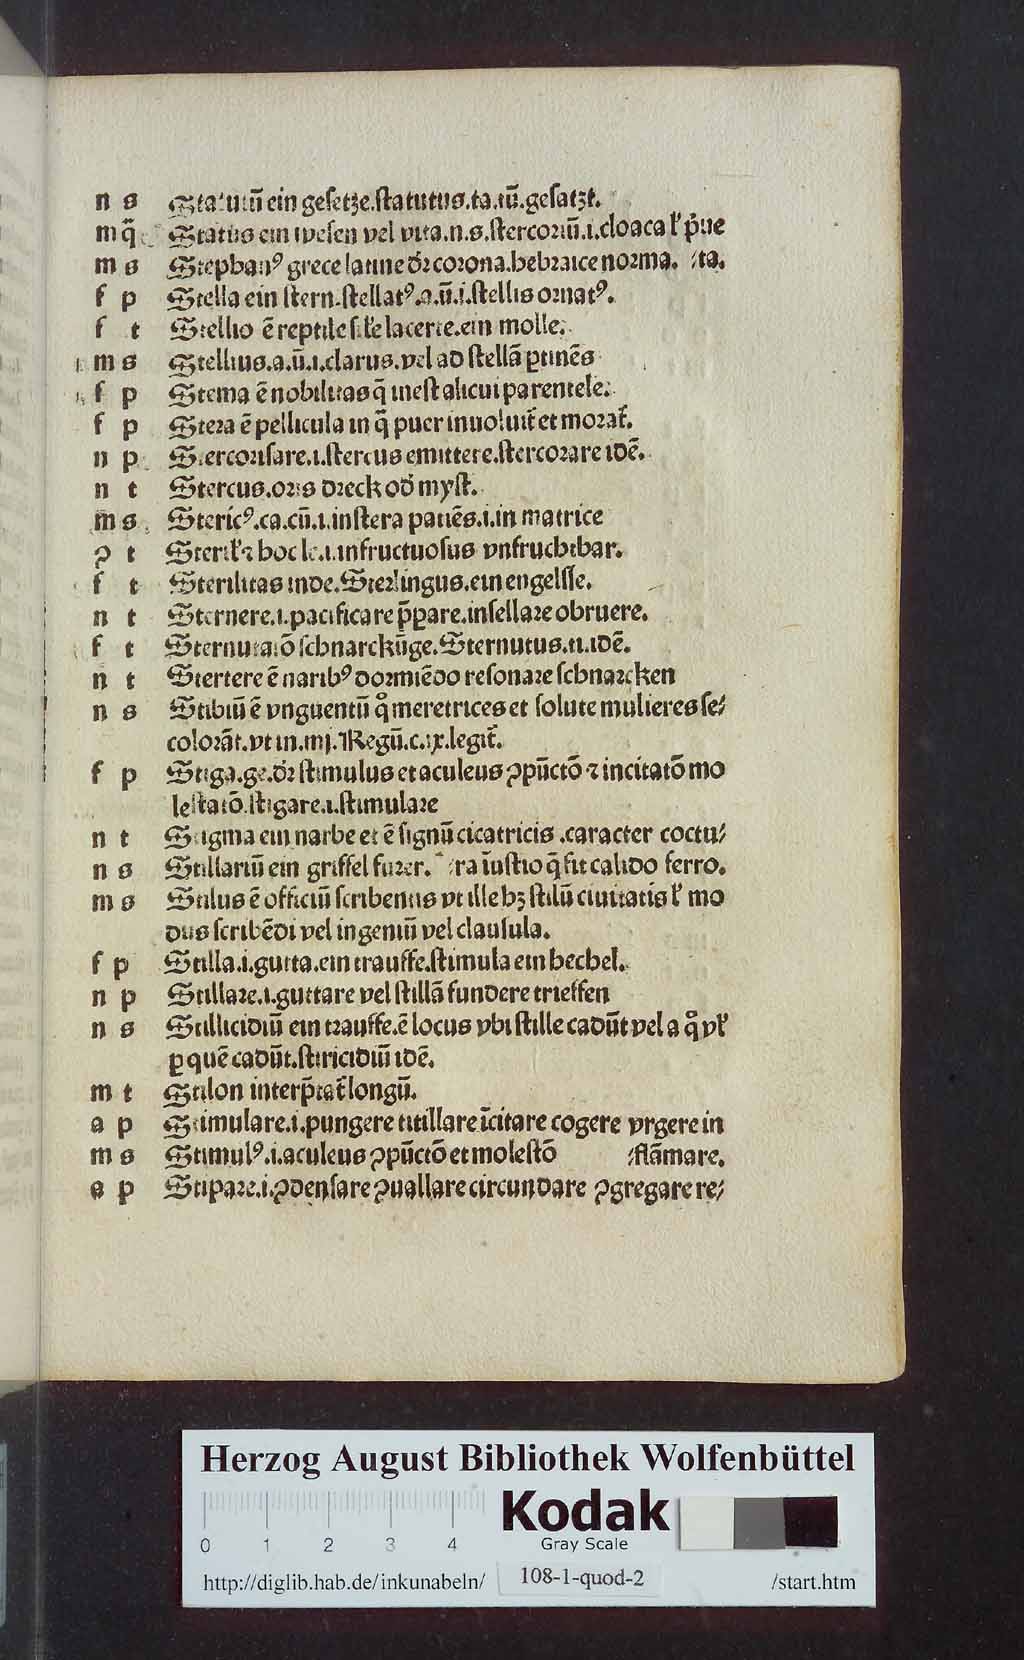 n s Statutū ein geſetze.ſtatutus.ta.tū.geſatzt.
m q̄ Status ein weſen vel vita.n.s.ſtercoriū.i.cloaca ł p̄ue
m s Stephanꝰ grece latine dr̄ corona.hebraice norma. ⸗ta.
f p Stella ein ſtern.ſtellatꝰ.a.ū.i.ſtellis ornatꝰ.
f t Stellio ē reptile ſil'e lacerte.ein molle.
m s Stellius.a.ū.i.clarus.vel ad ſtellā ꝑtinēs
f p Stema ē nobilitas q̄ ineſt alicui parentele.
f p Stera ē pellicula in q̄ puer inuoluit᷑ et morat᷑.
n p Stercoriſare.i.ſtercus emittere.ſtercorare idē.
n t Stercus.oris dreck od̓ myſt.
m s Stericꝰ.ca.cū.i.in ſtera patiēs.i.in matrice
ꝯ t Steril' ⁊ hoc le.i.infructuoſus vnfruchtbar.
f t Sterilitas inde.Sterlingus.ein engelſſe.
n t Sternere.i.pacificare p̄ꝑare.inſellare obruere.
f t Sternutatō ſchnarckūge.Sternutus.ti.idē.
n t Stertere ē naribꝰ dormiēdo reſonare ſchnarcken
n s Stibiū ē vnguentū qͦ meretrices et ſolute mulieres ſe⸗
colorāt.vt in.iiij.Regū.c.ix.legit᷑.
f p Stiga.ge.dr̄ ſtimulus et aculeus ꝯpūctō ⁊ incitatō mo
leſtatō.ſtigare.i.ſtimulare
n t Stigma ein narbe et ē ſignū cicatricis .caracter coctu⸗
n s Stillariū ein griffel furer. ⸗ra īuſtio q̄ fit calido ferro.
m s Stilus ē officiū ſcribentis vt ille hꝫ ſtilū ciuitatis ł mo
dus ſcribēdi vel ingeniū vel clauſula.
f p Stilla.i.gutta.ein trauffe.ſtimula ein bechel.
n p Stillare.i.guttare vel ſtillā fundere trieffen
n s Stillicidiū ein trauffe.ē locus vbi ſtille cadūt vel a qͦ vł
ꝑ quē cadūt.ſtiricidiū idē.
m t Stilon interp̄tat᷑ longū.
a p Stimulare.i.pungere titillare īcitare cogere vrgere in
m s Stimulꝰ.i.aculeus ꝯpūctō et moleſtō ⸗flāmare.
a p Stipare.i.ꝯdenſare ꝯuallare circundare ꝯgregare re⸗
Herzog August Bibliothek Wolfenbüttel
Kodak
Gray Scale
0 1 2 3 4
http://diglib.hab.de/inkunabeln/ 108-1-quod-2 /start.htm